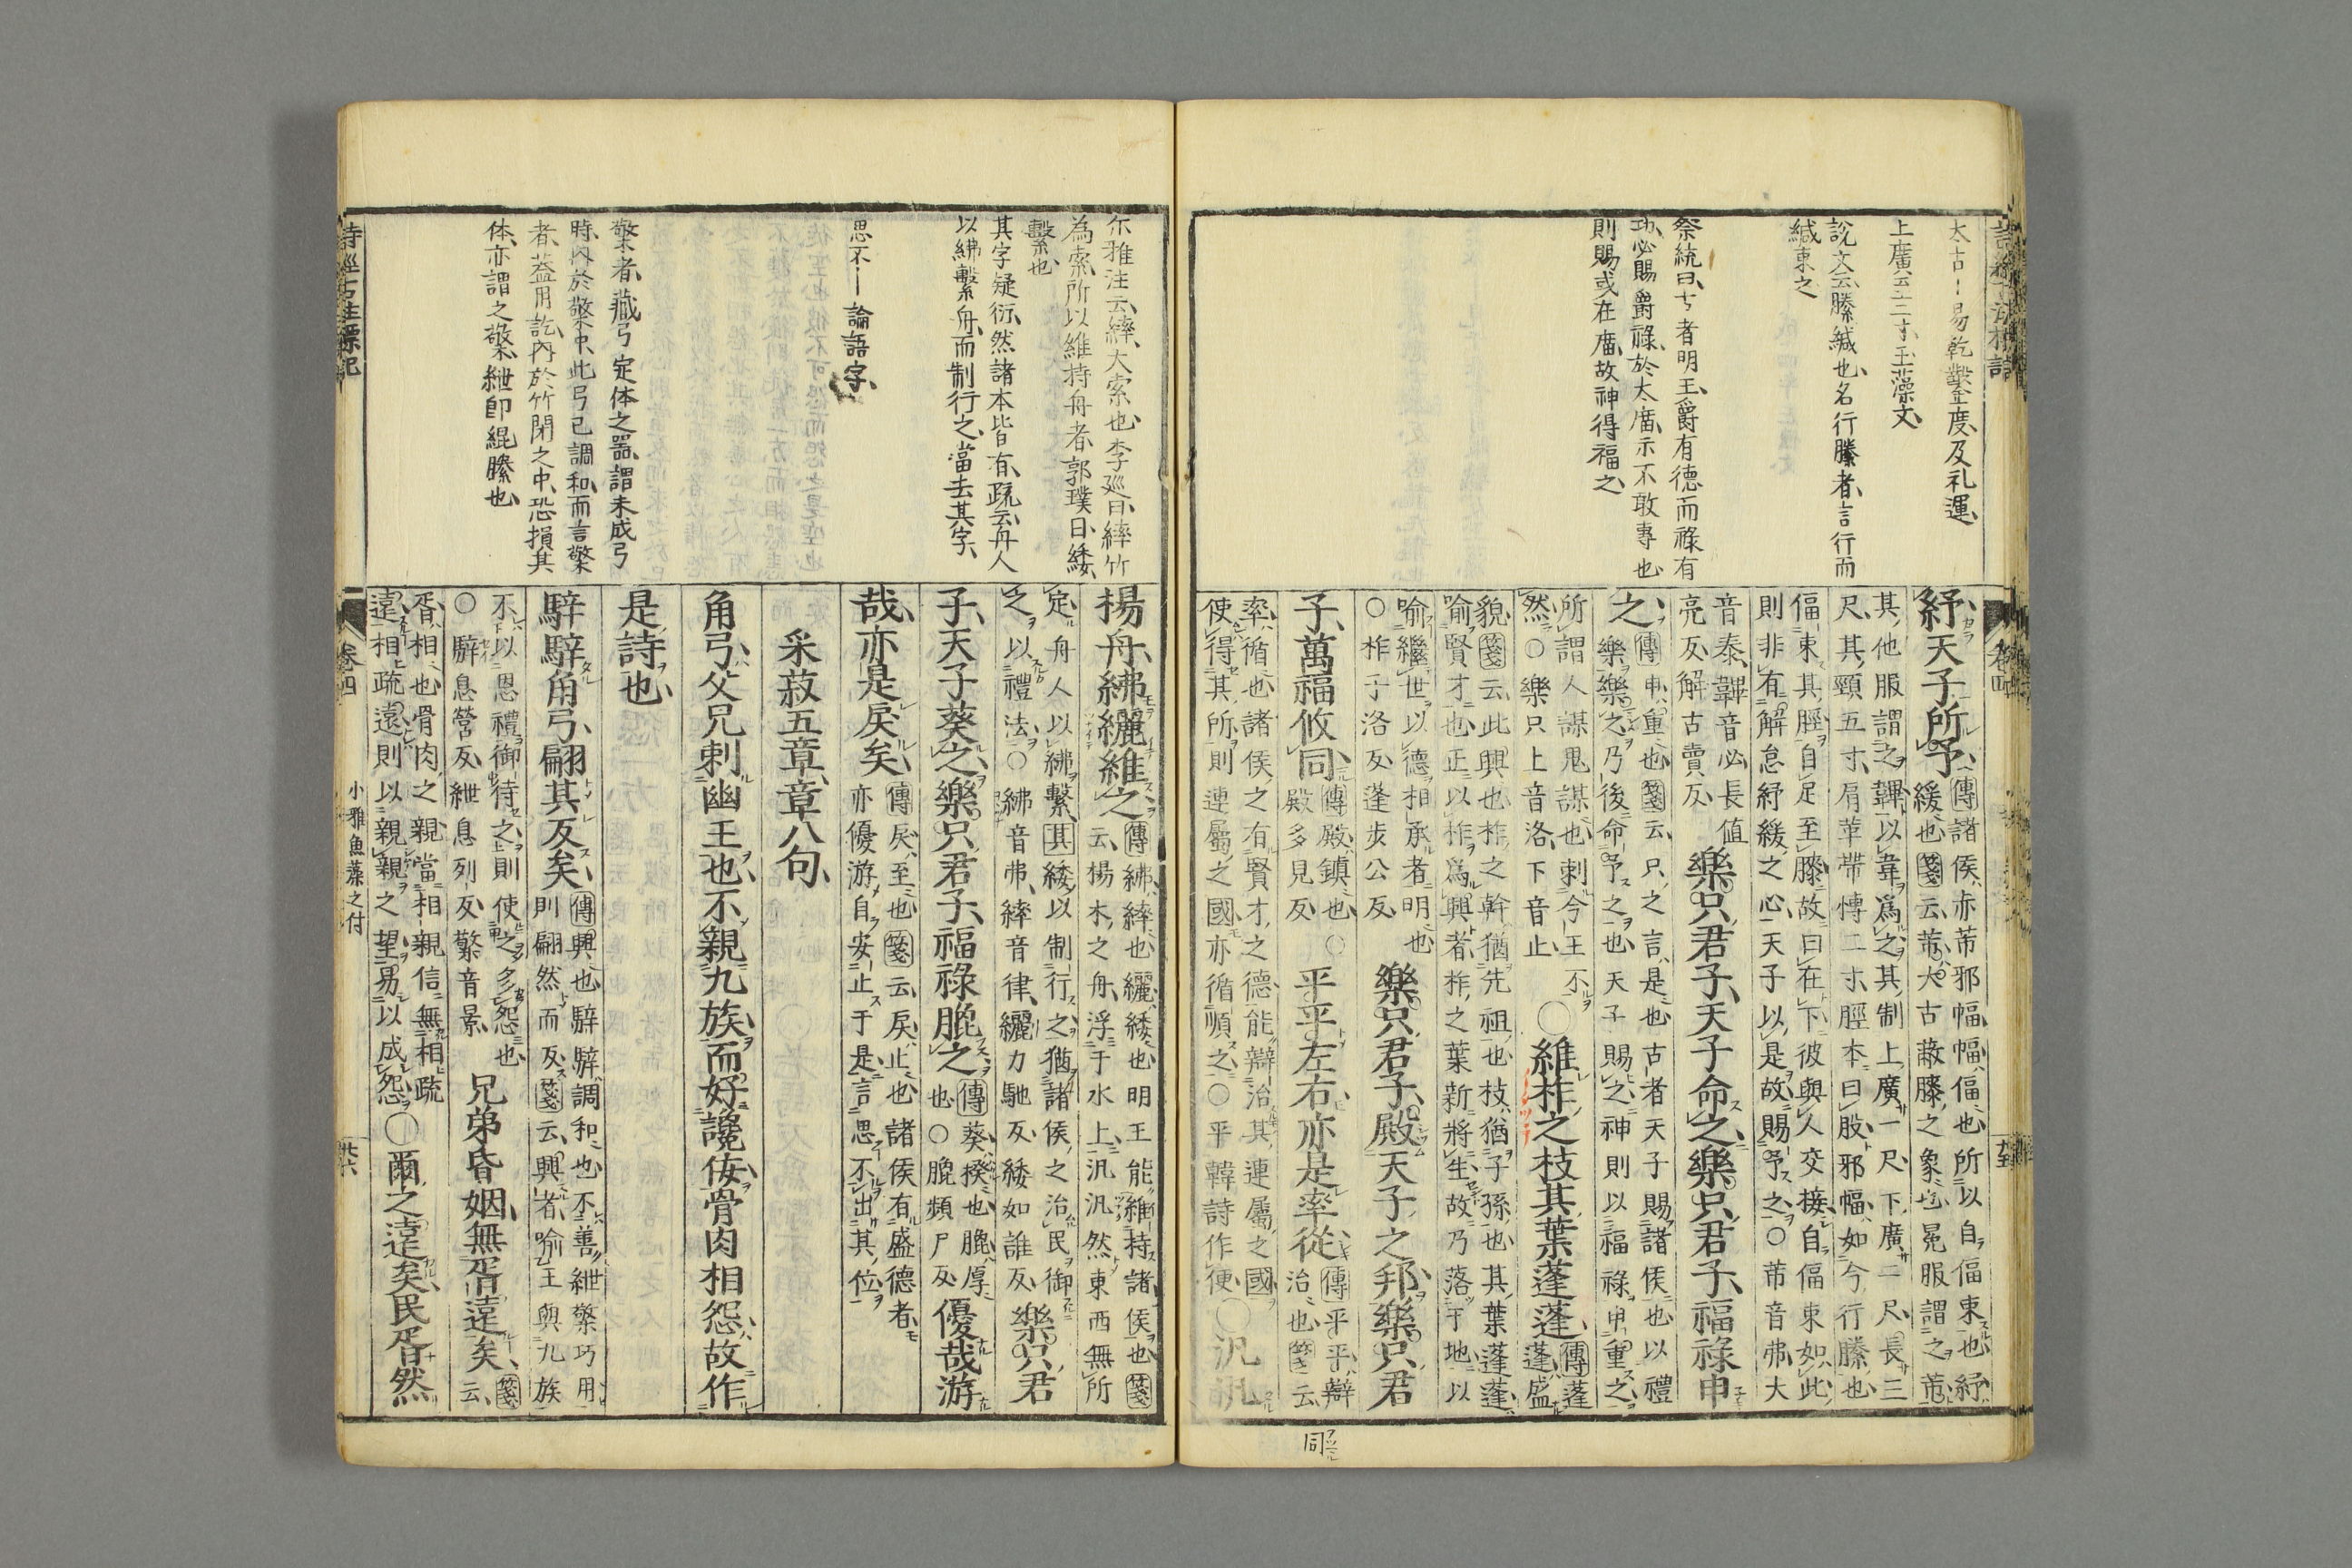 太古｜易乾鑿度及礼運
上廣云云二寸玉藻文
說文云縢緘也名行縢者言行而
緘束之
祭統曰古者明王爵有德而祿有
功必賜爵祿於太庿示不敢專也
則賜或在庿故神得福之
卷四
紓天子所予
傳諸侯赤芾邪幅幅偪也所以自偪束也紓
緩也箋云芾大古蔽膝之象也冕服謂之芾
其他服謂之韠以韋爲之其制上廣一尺下廣二尺長三
尺其頸五寸肩革帶博二寸脛本曰股邪幅如今行縢也
偪束其脛自足至膝故曰在下彼與人交接自偪束如此
則非有解怠紓緩之心天子以是故賜予之○芾音弗大
音泰韠音必長值
亮反解古賣反
樂只君子天子命之樂只君子福祿申
之
傳申重也箋云只之言是也古者天子賜諸侯也以禮
樂樂之乃後命予之也天子賜之神則以福祿申重之
所謂人謀鬼謀也刺今王不
然○樂只上音洛下音止
○維柞之枝其葉蓬蓬
傳蓬
蓬盛
貌箋云此興也柞之幹猶先祖也枝猶子孫也其葉蓬蓬
喻賢才也正以柞爲興者柞之葉新將生故乃落于地以
喻繼世以德相承者明也
○柞子洛反蓬步公反
樂只君子殿天子之邦樂只君
子萬福攸同
傳殿鎮也○
殿多見反
平平左右亦是率從
傳平平辯
治也箋云
率循也諸侯之有賢才之德能辯治其連屬之國
使得其所則連屬之國亦循順之○平韓詩作便
○汎汎
同
尓雅注云繂大索也李廵曰繂竹
為索所以維持舟者郭璞曰緌
繫也
其字疑衍然諸本皆有疏云舟人
以紼繫舟而制行之當去其字
思不｜論語字
檠者藏弓定体之器謂未成弓
時內於檠中此弓已調和而言檠
者葢用訖內於竹閉之中恐損其
体亦謂之檠紲即緄縢也
楊舟紼纚維之
傳紼繂也纚緌也明王能維持諸侯也箋
云楊木之舟浮于水上汎汎然東西無所
定舟人以紼繫其緌以制行之猶諸侯之治民御
之以禮法○紼音弗繂音律纚力馳反緌如誰反
樂只君
子天子葵之樂只君子福祿膍之
傳葵揆也膍厚
也○膍頻尸反
優哉游
哉亦是戾矣
傳戾至也箋云戾止也諸侯有盛德者
亦優游自安止于是言思不出其位
采菽五章章八句
角弓父兄刺幽王也不親九族而好讒佞骨肉相怨故作
是詩也
騂騂角弓翩其反矣
傳興也騂騂調和也不善紲檠巧用
則翩然而反箋云興者喻王與九族
不以恩禮御待之則使之多怨也
○騂息營反紲息列反檠音景
兄弟昏姻無胥遠矣
箋
云
胥相也骨肉之親當相親信無相疏
遠相疏遠則以親親之望易以成怨
○爾之遠矣民胥然
詩經古註標記
卷四
小雅魚藻之什
廿六